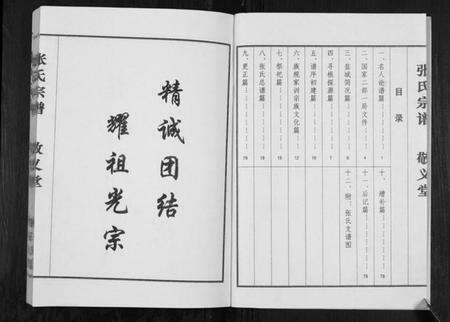 张氏宗谱
敬义堂
目录
一、名人论谱篇 1
二、国家二部一局文件 4
三、盐城简况篇 7
四、寻根探源篇
五、谱序初建篇
六、族规家训宗族文化篇
七、祭祀篇
八、张氏总谱篇
九、更正篇 76
十、增补篇 78
十一、后记篇 79
十二、附：张氏支谱图
精诚团结
耀祖光宗
张氏宗谱
敬义堂